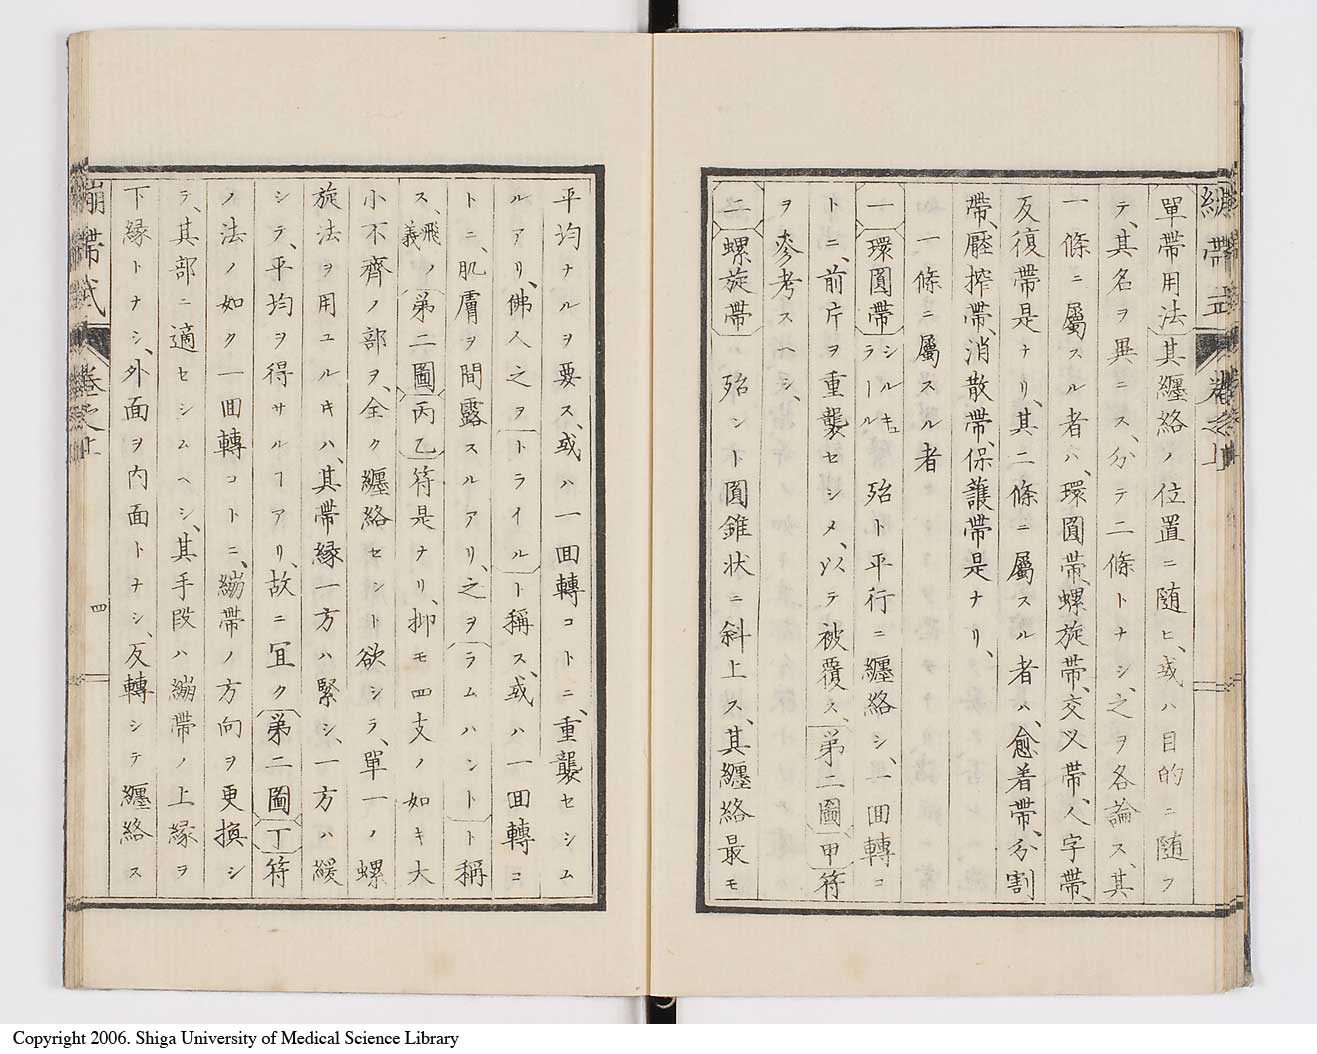 繃帯式 卷之上
單帯用法其纏絡ノ位置ニ随ヒ、或ハ目的ニ随フ
テ、其名ヲ異ニス、分テ二條トナシ、之ヲ各論ス、其
一條ニ屬スル者ハ、環圓帯、螺旋帯、交叉帯、人字帯、
反復帯是ナリ、其二條ニ屬スル者ハ、愈着帯、分割
帯、壓搾帯、消散帯、保護帯是ナリ、
一條ニ屬スル者
一 環圓帯 シルキュラーール 殆ト平行ニ纏絡シ、一回轉コ
トニ、前片ヲ重襲セシメ、以テ被覆ス、第二圖甲符
ヲ參考スヘシ、
二 螺旋帯ハ 殆ント圓錐状ニ斜上ス、其纏絡最モ
平均ナルヲ要ス、或ハ一回轉コトニ、重襲セシム
ルアリ、佛人之ヲトライルト稱ス、或ハ一回轉コ
トニ、肌膚ヲ間露スルアリ、之ヲラムハントト稱
ス、飛義ノ第二圖丙乙符是ナリ、抑モ四支ノ如キ大
小不齊ノ部ヲ、全ク纏絡セント欲シテ、單一ノ螺
旋法ヲ用ユルキハ、其帯縁一方ハ緊シ、一方ハ緩
シテ、平均ヲ得サルヿアリ、故ニ宜ク第二圖丁符
ノ法ノ如ク一回轉コトニ、繃帯ノ方向ヲ更換シ
テ、其部ニ適セシムヘシ、其手段ハ繃帯ノ上縁ヲ
下縁トナシ、外面ヲ内面トナシ、反轉シテ纏絡ス
繃帯式 卷之上 四
Copyright 2006. Shiga University of Medical Science Library